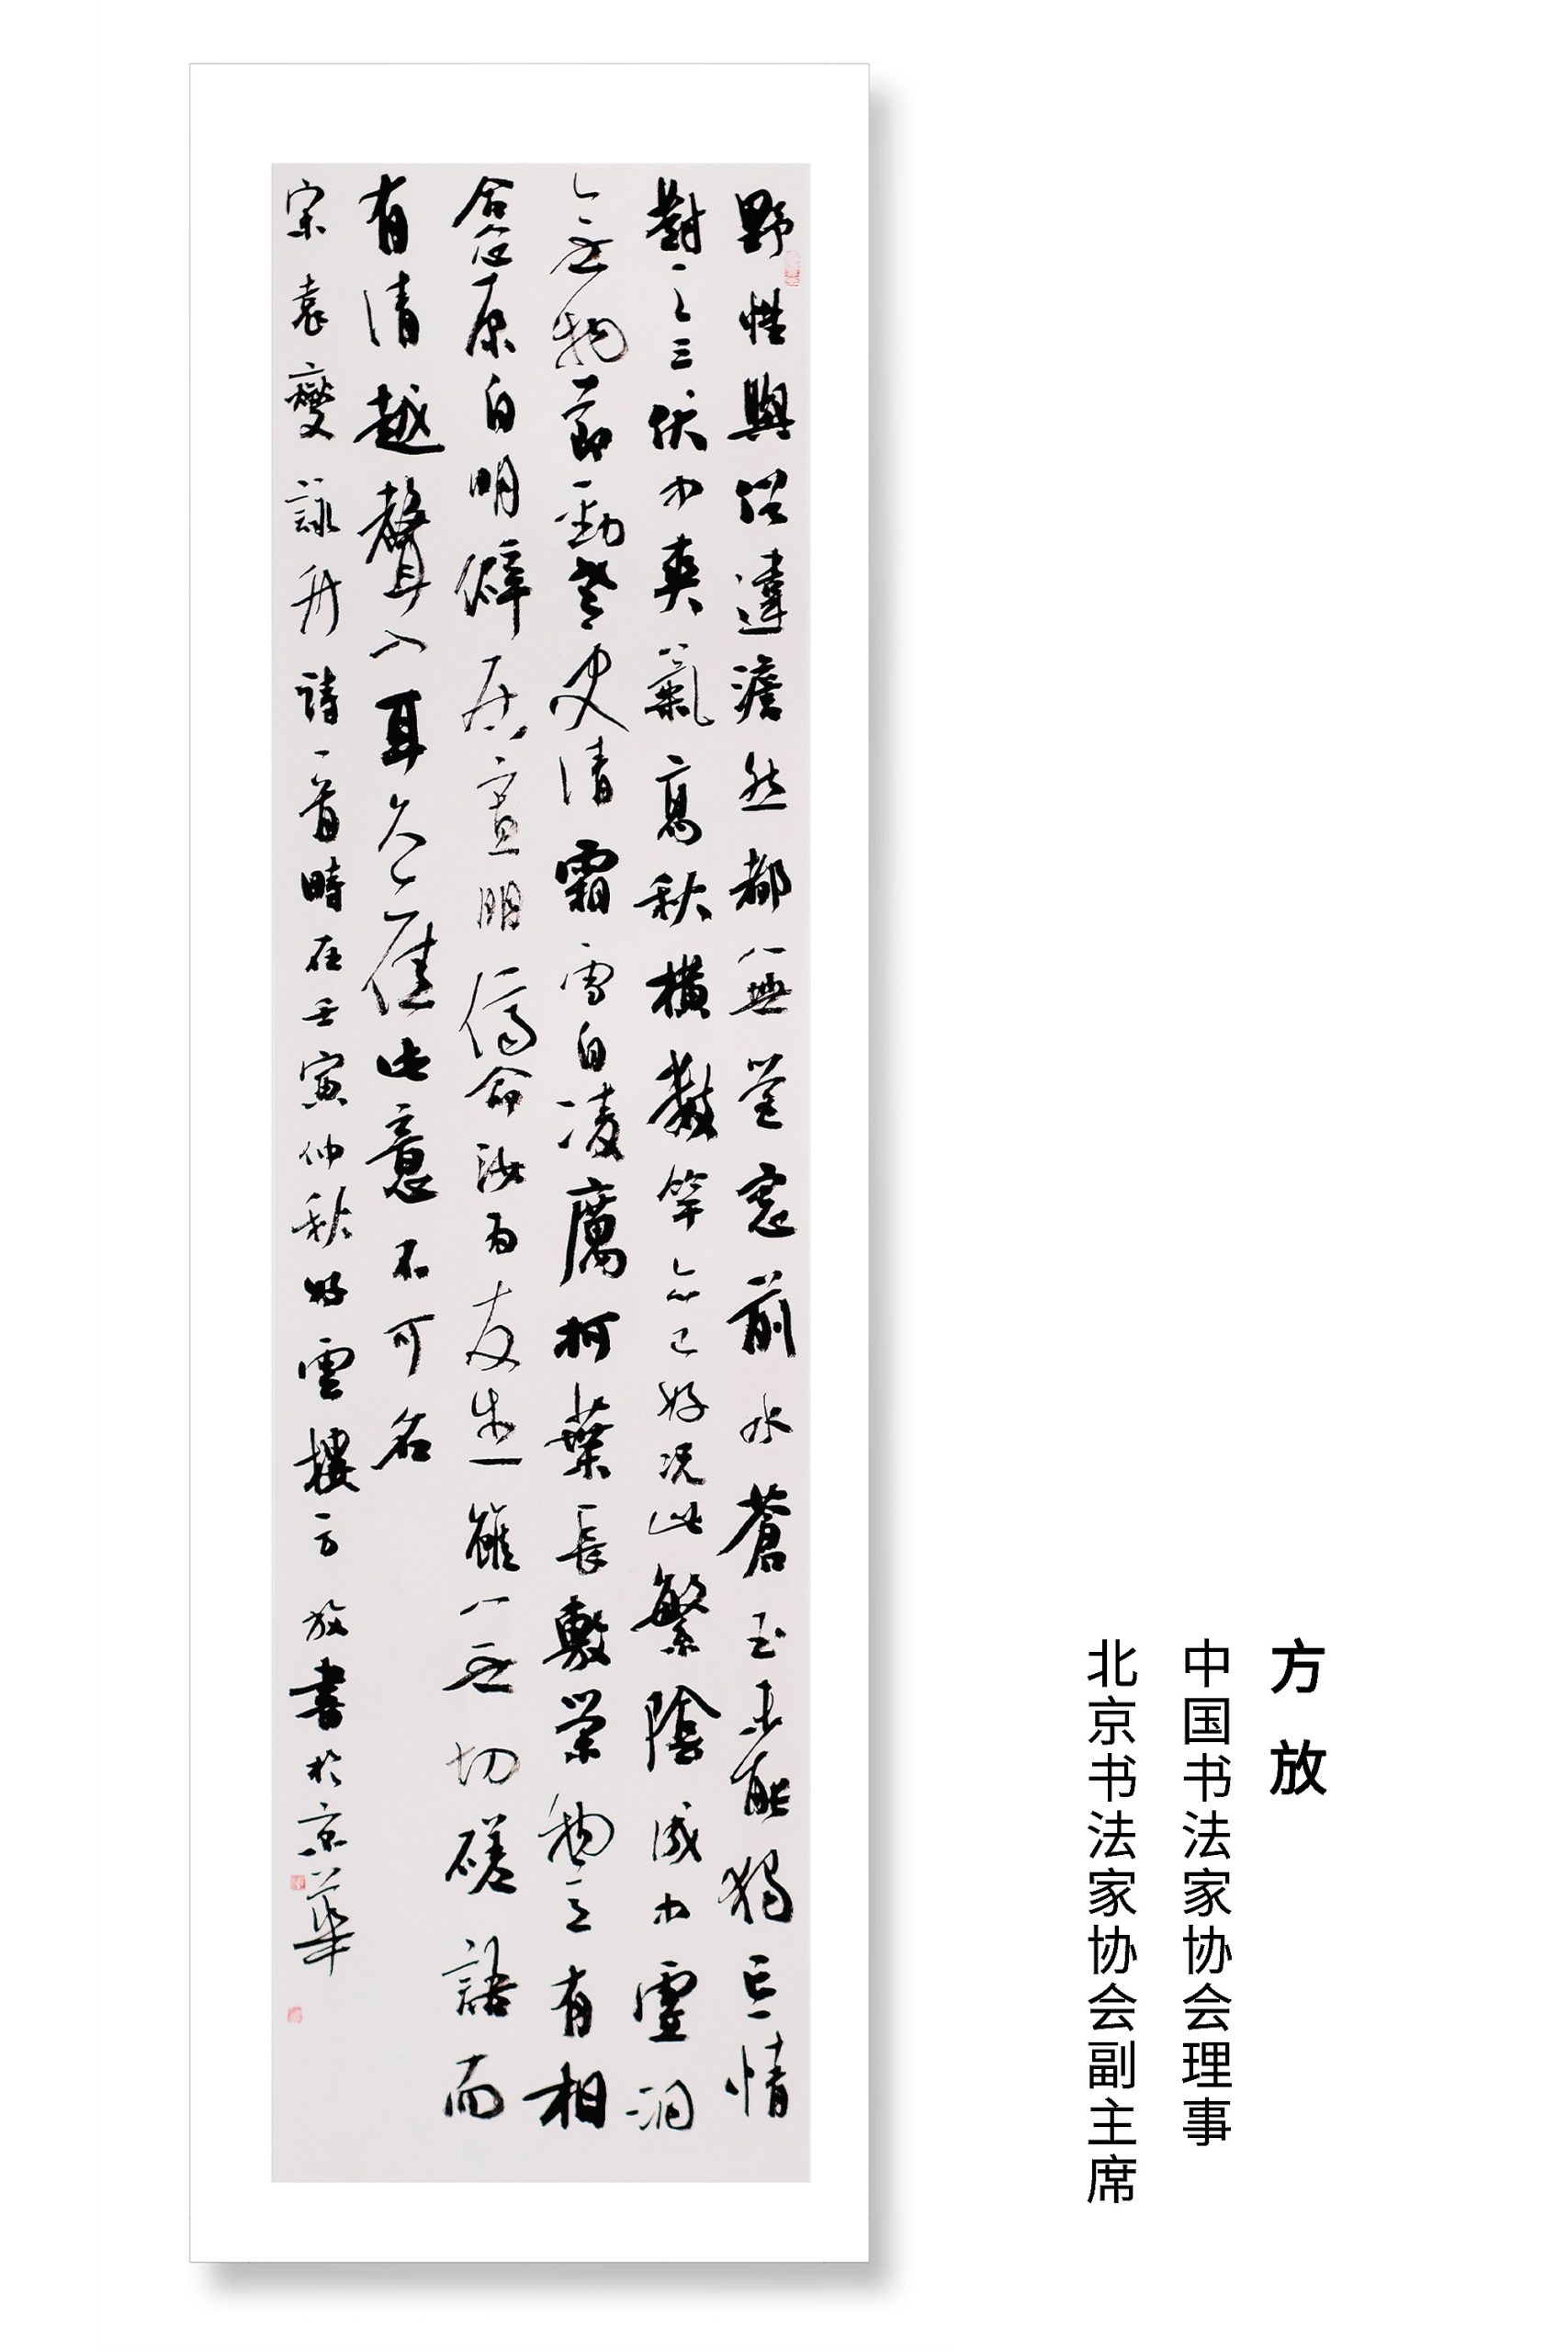 野性與俗違澹然都無營窓前水蒼玉未能獨忘情
對之三伏中爽氣高秋橫數竿亦已好況此繁陰成中虛洞
無物節勁老更清霜雪自凌厲柯葉長敷榮物之有相
合心原自明僻居寡朋儔命汝為友生雖無切磋語而
有清越聲入耳久愈佳此意不可名
宋袁燮詠竹詩一首時在壬寅仲秋好雲樓方放書於京華
方放
中国书法家协会理事
北京书法家协会副主席